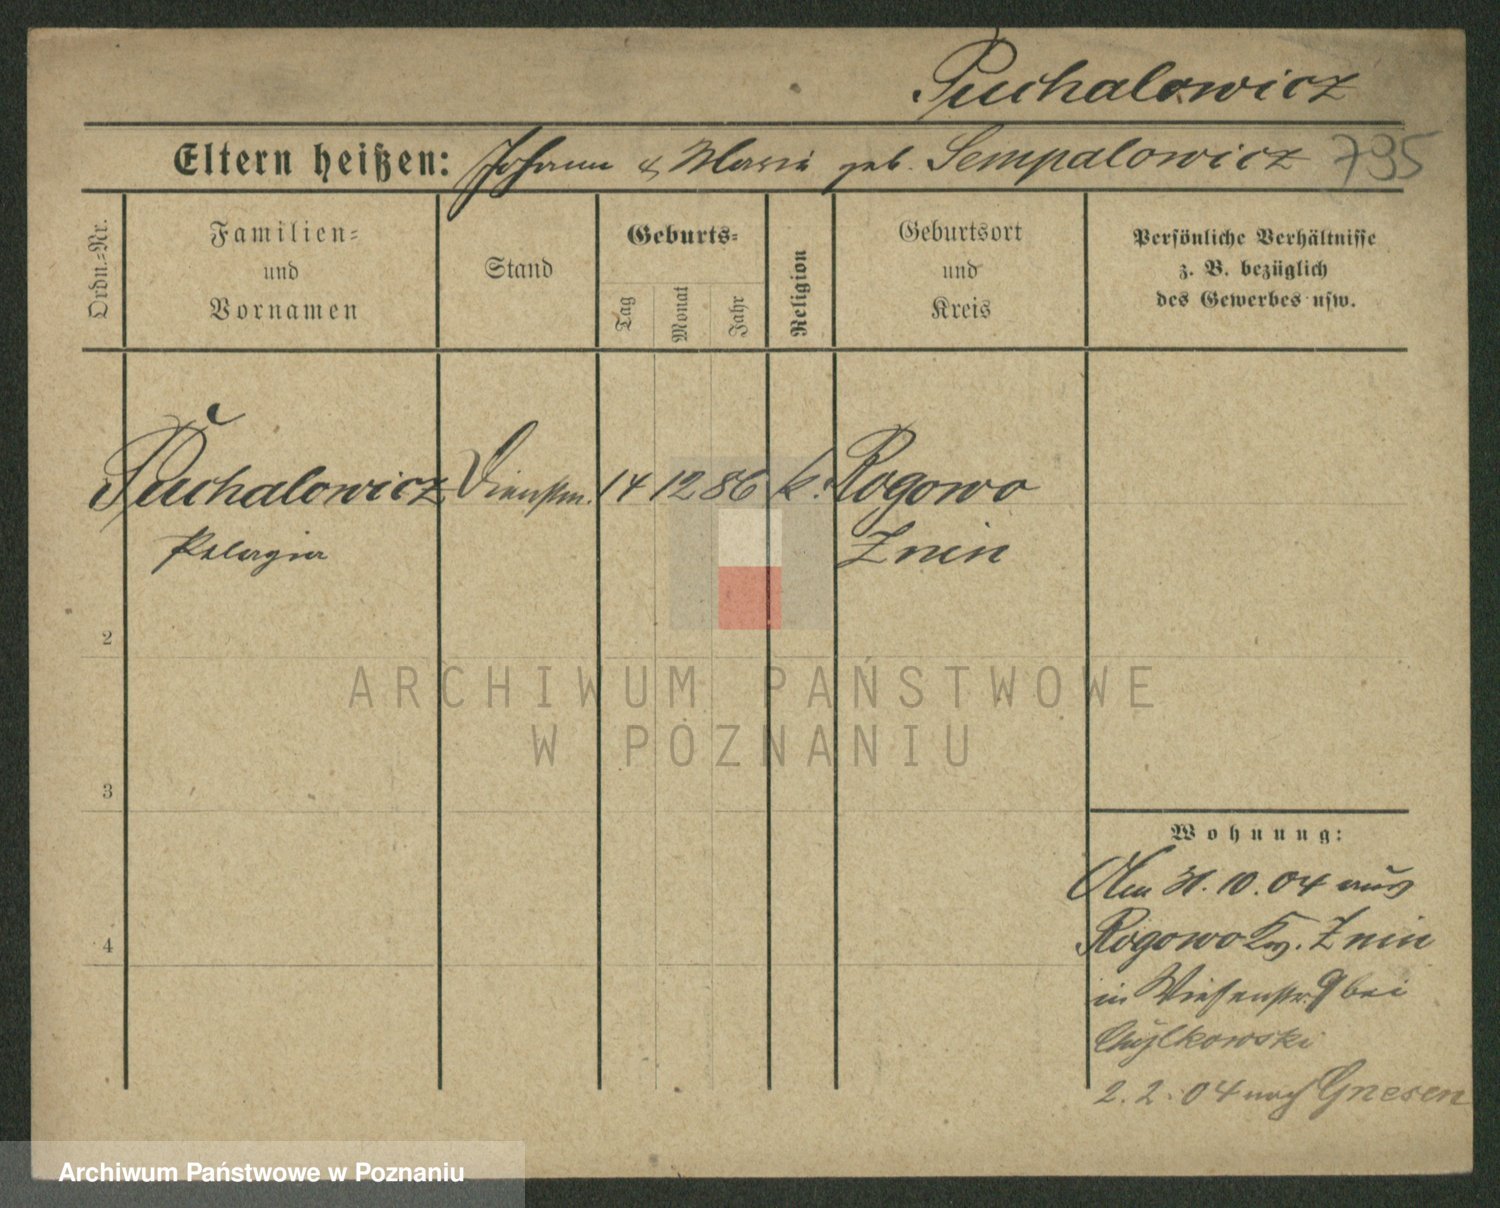 Puchalowicz
Eltern heißen: Johann & Maria geb. Sempalowicz 795
Ordn.=Nr.
Familien=
und
Vornamen
Stand
Geburts=
Tag
Monat
Jahr
Religion
Geburtsort
und
Kreis
Persönliche Verhältnisse
z. B. bezüglich
des Gewerbes usw.
Puchalowicz Dienstm. 14 12 86 k. Rogowo
Pelagia Znin
2
ARCHIWUM PAŃSTWOWE
W POZNANIU
3
Wohnung:
Am 31. 10. 04 aus
Rogowo Kr. Znin
4
in Wiesenstr. 9 bei
2. 2. 04 nach Gnesen
Archiwum Państwowe w Poznaniu